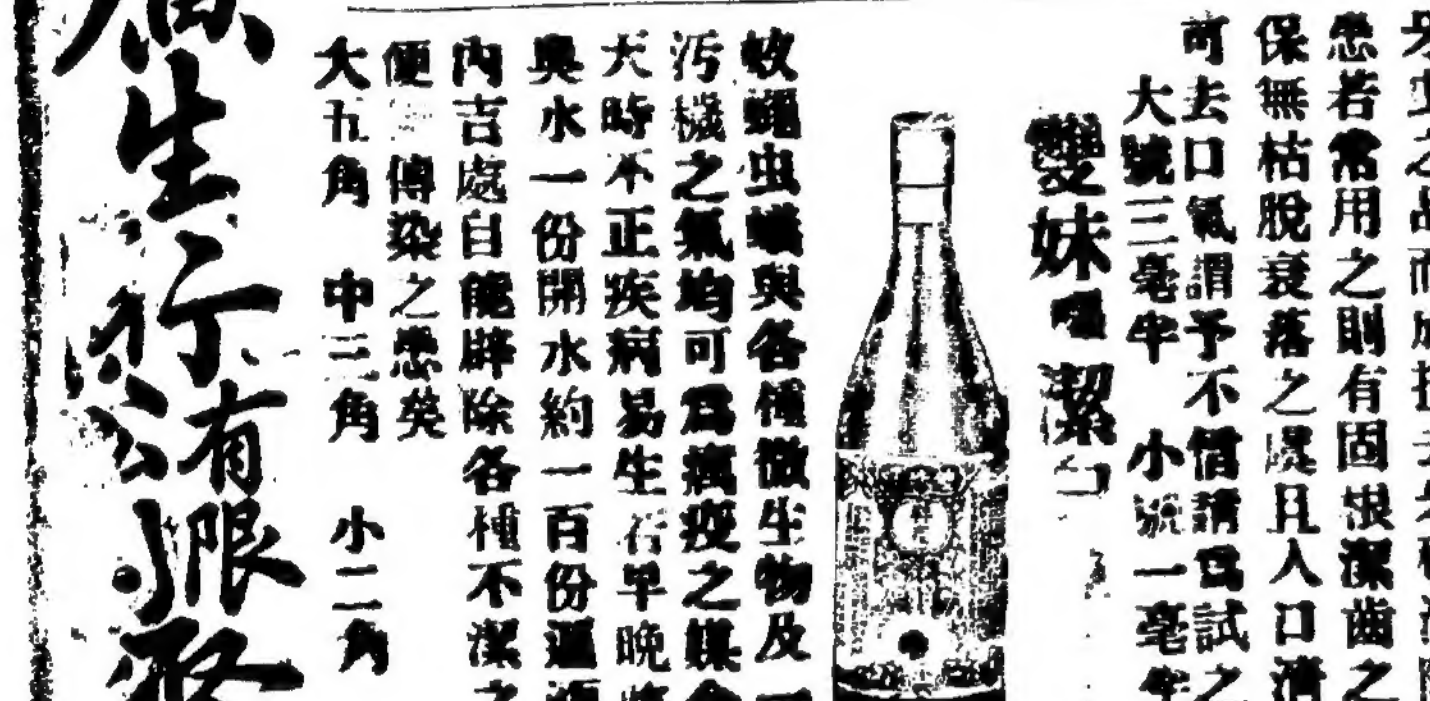 之品而
患若常用之則有固根潔齒之
保無枯脫衰落之虞且入口清
可去口氣謂予不信請爲試之
大號三毫半 小號一毫半
雙妹嘜潔口
蚊蠅虫蟻與各種微生物及一
污穢之氣均可爲瘟疫之媒
天時不正疾病易生若早晚將
臭水一份開水約一百份遍洒
內吉處自能辟除各種不潔之
便 傳染之患矣
大五角 中三角 小二角
廣生行有限公司